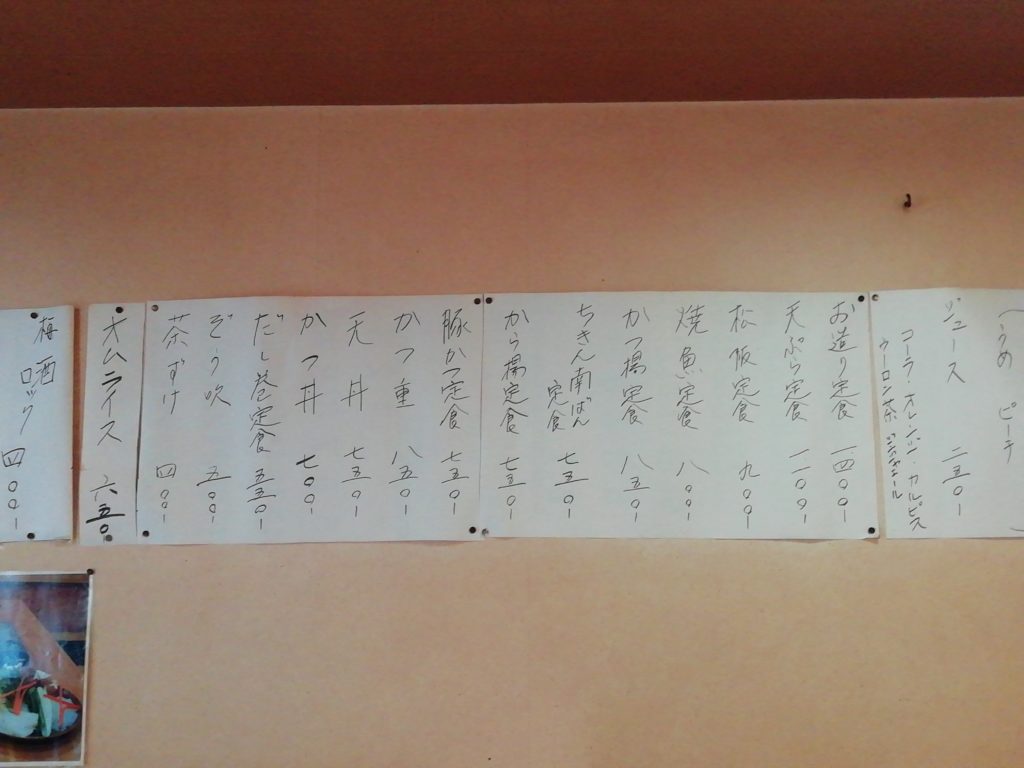 (うめ ピーチ)
ジュース 二五〇-
コーラ・オレンジ・カルピス
ウーロン茶 ジンジャエール
お造り定食 一.四〇〇-
天ぷら定食 一一〇〇-
松阪定食 九〇〇-
焼魚定食 八〇〇-
かつ揚定食 八五〇-
ちきん南ばん
定食 七五〇-
から揚定食 七五〇-
豚かつ定食 七五〇-
かつ重 八五〇-
天丼 七五〇-
かつ丼 七〇〇-
だし巻定食 五五〇-
ぞう吹 五〇〇-
茶ずけ 四〇〇-
オムライス 六五〇-
梅酒ロック 四〇〇-